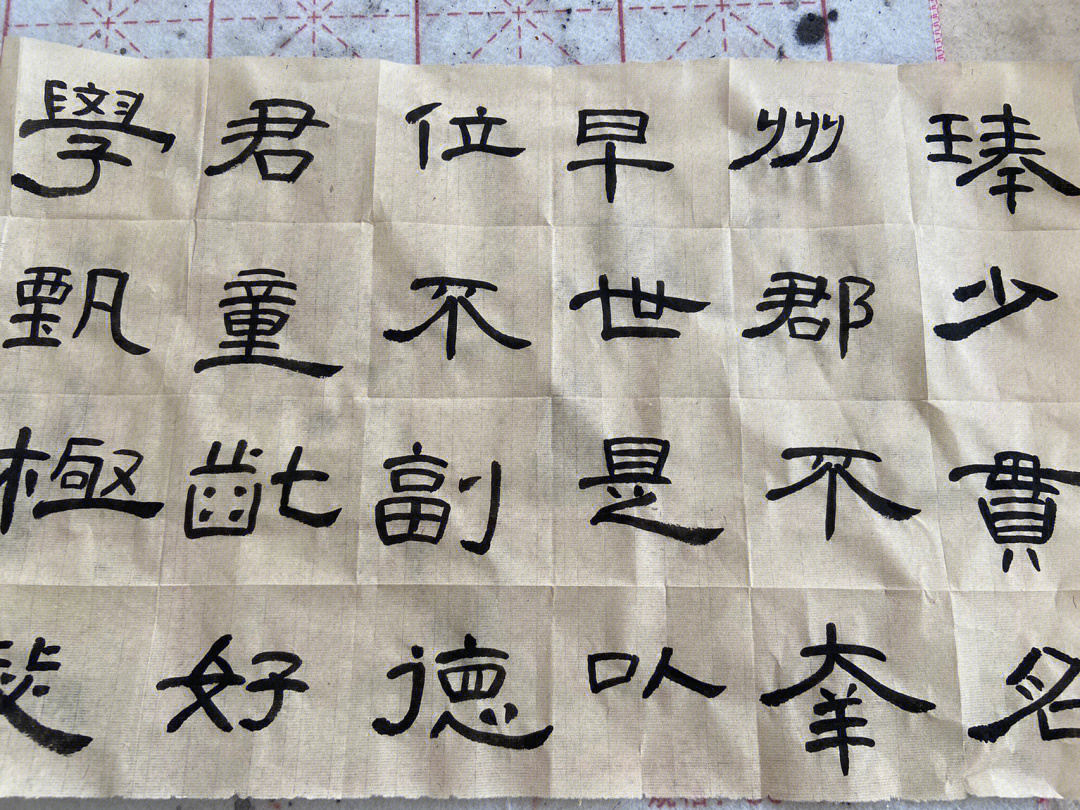 琫少貫名
州郡不幸
早世是以
位不副德
君童齔好
學甄極毖